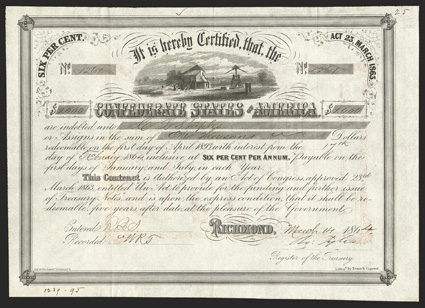 25
SIX PER CENT.
It is hereby Certified, that, the
ACT 23, MARCH 1863.
No.
No.
CONFEDERATE STATES OF AMERICA.
are indebted unto
or Assigns in the sum of Dollars
redeemable on the first day of April 1893 with interest from the 17th
day of February 1864 inclusive at SIX PER CENT PER ANNUM, Payable on the
first days of January and July, in each Year.
This Contract is Authorized by an Act of Congress, approved 23rd
March 1863, entitled An Act to provide for the funding and further issue
of Treasury Notes, and is upon the express condition, that it shall be re-
deemable, five years, after date, at the pleasure of the Government.
RICHMOND, March 1864
Entered
Recorded
Register of the Treasury
1229-95